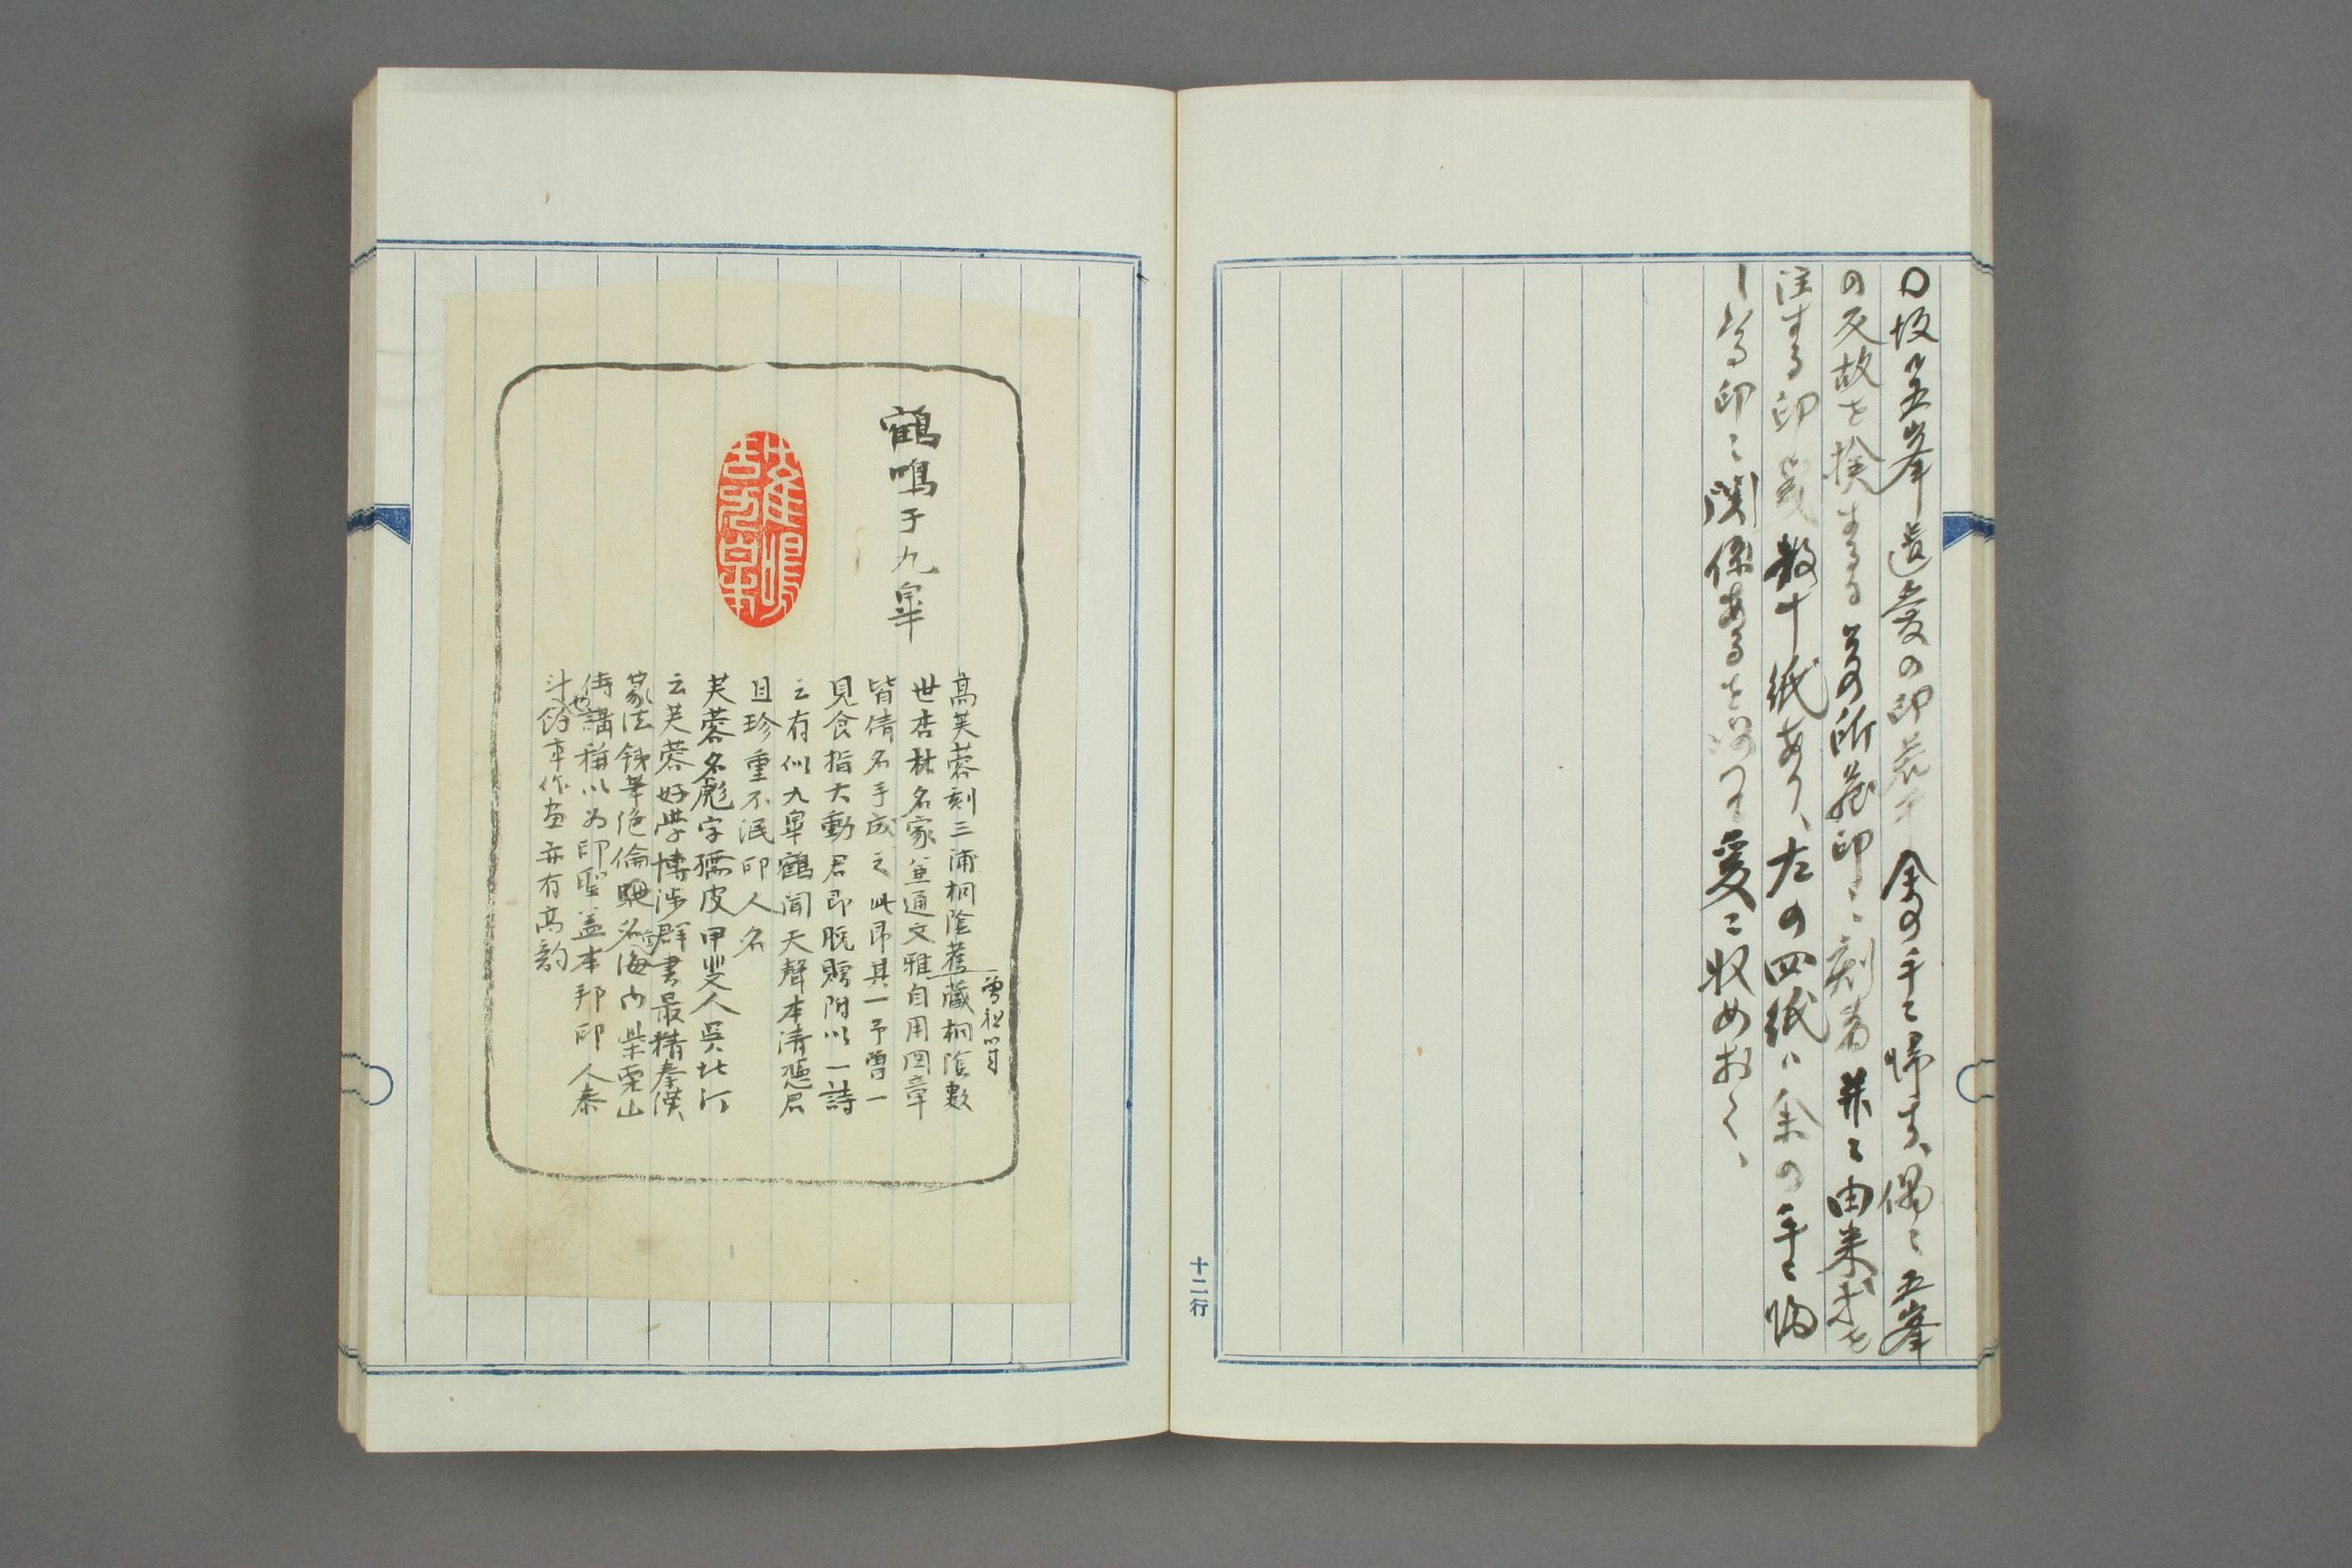 〇坂口五峯遺愛の印若干余の手ニ帰す、偶ニ五峯
の反故を検するに其の所蔵印ニ刻者并ニ由来等を
注する印箋数十紙あり、左の四紙ハ余の手ニ帰
しゝる印ニ関係あるを以て爰ニ収めおく、
十二行
鶴鳴于九皐
高芙蓉刻三浦桐陰舊蔵桐陰數
曽祖
世杏林名家並通文雅自用図章
皆倩名手成之此印其一予曽一
見食指大動君即脱贈附以一詩
云有似九皐鶴聞天聲本清憑君
且珍重不泯印人名
芙蓉名彪字孺皮甲斐人呉北汀
云芙蓉好學博渉群書最精秦漢
篆法鉄筆絶倫馳名海内柴栗山
侍講稱以为印聖盖本邦印人泰
斗也餘事作画亦有高韵